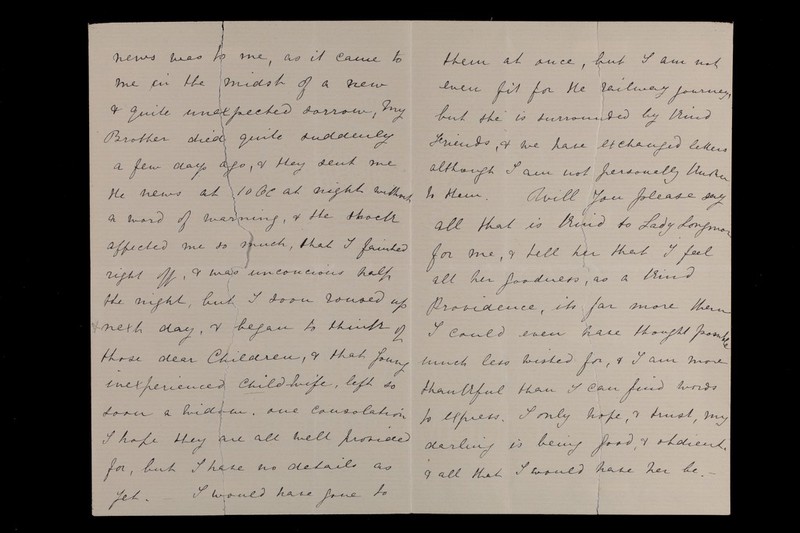 news was to me, as it came to
me in the midst of a new
& quite unexpected sorrow, my
Brother died quite suddenly
a few days ago, & they sent me
the news at 10 OC at night without
a word of warning, & the shock
affected me so much, that I fainted
right off, & was unconcious half
the night, but I soon roused up
next day, & began to think of
those dear Children, & that young
inexperienced Child-wife, left so
soon a widow. one consolation
I hope they are all well provided
for, but I have no details as
yet. I would have gone to
them at once, but I am not
even fit for the railway journey,
but she is surrounded by kind
friends, & we have exchanged letters
although I am not personally known
to them. Will you please say
all that is kind to Lady Longmore
for me, & tell her that I feel
all her goodness, as a kind
Providence, its far more them
I could even have thought possible
much less wished for, & I am more
thankful than I can find words
to express. I only hope, & trust, my
darling is being good, & obedient,
& all that I would have her be. -